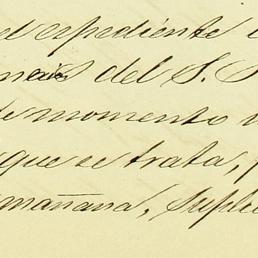 el expediente
del S.
de momento
que se trata,
mañana, suplic